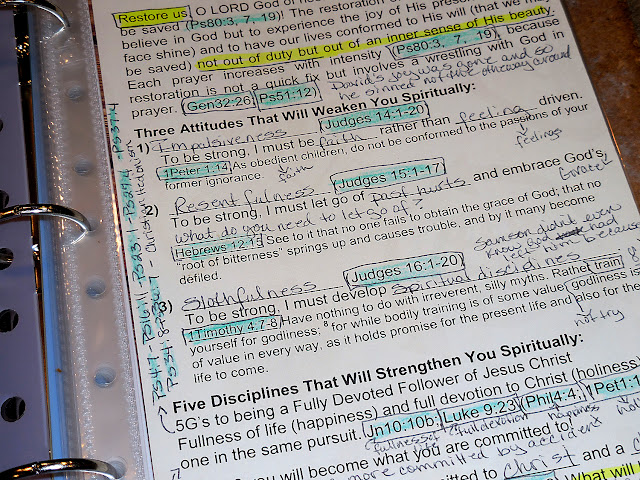 Restore us, O LORD God of
be saved (Ps80:3, 7, 19)! The restoration
believe in God but to experience the joy of His presence
face shine) and to have our lives conformed to His will (that we may
be saved) not out of duty but out of an inner sense of His beauty,
Each prayer increases with intensity (Ps80:3, 7, 19), because
restoration is not a quick fix but involves a wrestling with God in
prayer. (Gen32:26, Ps51:12) David's joy was gone and so
he sinned not the other way around
Three Attitudes That Will Weaken You Spiritually:
1) Impulsiveness Judges 14:1-20
To be strong, I must be faith rather than feeling driven.
1Peter 1:14 As obedient children, do not be conformed to the passions of your
former ignorance. faith feelings
2) Resentfulness Judges 15:1-17
To be strong, I must let go of past hurts and embrace God's
what do you need to let go of?
Hebrews 12:15 See to it that no one fails to obtain the grace of God; that no
"root of bitterness" springs up and causes trouble, and by it many become
defiled.
Samson didn't even
know God had
left him because
3) Slothfulness Judges 16:1-20
To be strong, I must develop spiritual disciplines
1Timothy 4:7-8 Have nothing to do with irreverent, silly myths. Rather train
yourself for godliness; 8 for while bodily training is of some value, godliness is
of value in every way, as it holds promise for the present life and also for the
life to come.
not try
Five Disciplines That Will Strengthen You Spiritually:
5G's to being a Fully Devoted Follower of Jesus Christ
Fullness of life (happiness) and full devotion to Christ (holiness
one in the same pursuit. Jn10:10b; Luke 9:23; (Phil4:4; 1Pet1:1
fullness of full devotion happiness
you will become what you are committed to!
more committed by accident
mitted to Christ and a
What will